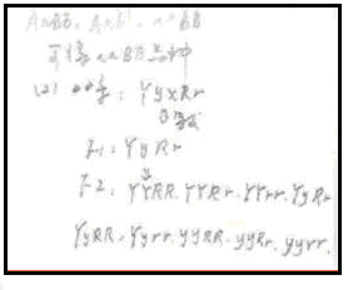 AaBB、AaBb、aaBB
可得aaBB
(2) 子：YyxRr
F-1：YyRr
F-2：YYRR、YYRr、YYrr、YyRr
YyRR、Yyrr、yyRR、yyRr、yyrr.